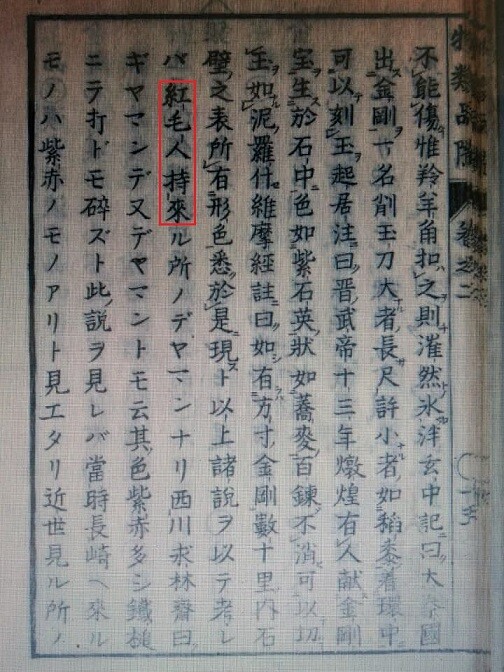 物類品隲 卷之二
不能傷惟羚羊角扣之則漼然氷泮玄中記曰大秦國
出金剛一名削玉刀大者長尺許小者如稻黍着環中
可以刻玉起居注曰晋武帝十三年燉煌有人献金剛
宝生於石中色如紫石英狀如蕎麥百鍊不消可以切
玉如泥羅什維摩經註曰如有方寸金剛數十里内石
壁之表所有形色悉於是現スト以上諸説ヲ以テ考レ
バ紅毛人持來ル所ノデヤマンナリ西川求林齋曰
ギヤマンデ又デヤマントモ云其色紫赤多シ鐵槌
ニテ打ドモ碎ズト此説ヲ見レバ當時長崎ヘ來ル
モノハ紫赤ノモノアリト見エタリ近世見ル所ノ